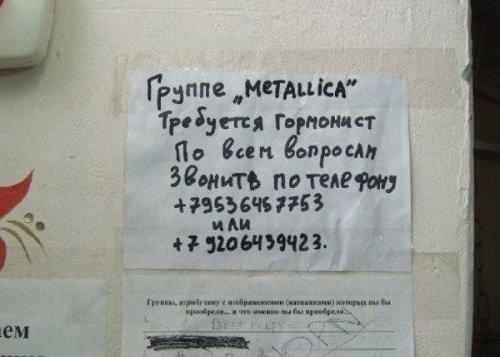 Группе „METALLICA”
Требуется гормонист
По всем вопросам
Звонить по телефону
+79536457753
или
+79206439423.
Группы, атрибутику с изображениями (названиями) которых вы бы
приобрели... и что именно вы бы приобрели...
1.
аем